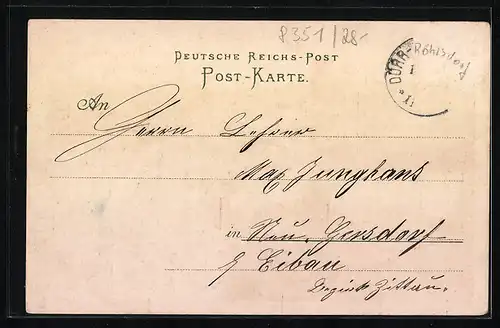 8351/28-
DEUTSCHE REICHS-POST
POST-KARTE.
DÜRR-Röhrsdorf
1
An
Herrn Lehrer
Max Junghans
in Neu-Gersdorf
b/ Eibau
Bezirk Zittau.